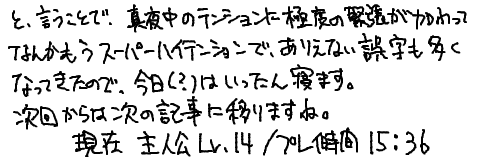 と、言うことで、真夜中のテンションに極度の緊張が加わって
なんかもうスーパーハイテンションで、ありえない誤字も多く
なってきたので、今日(?)はいったん寝ます。
次回からは次の記事に移りますね。
現在 主人公Lv.14/プレイ時間 15:36